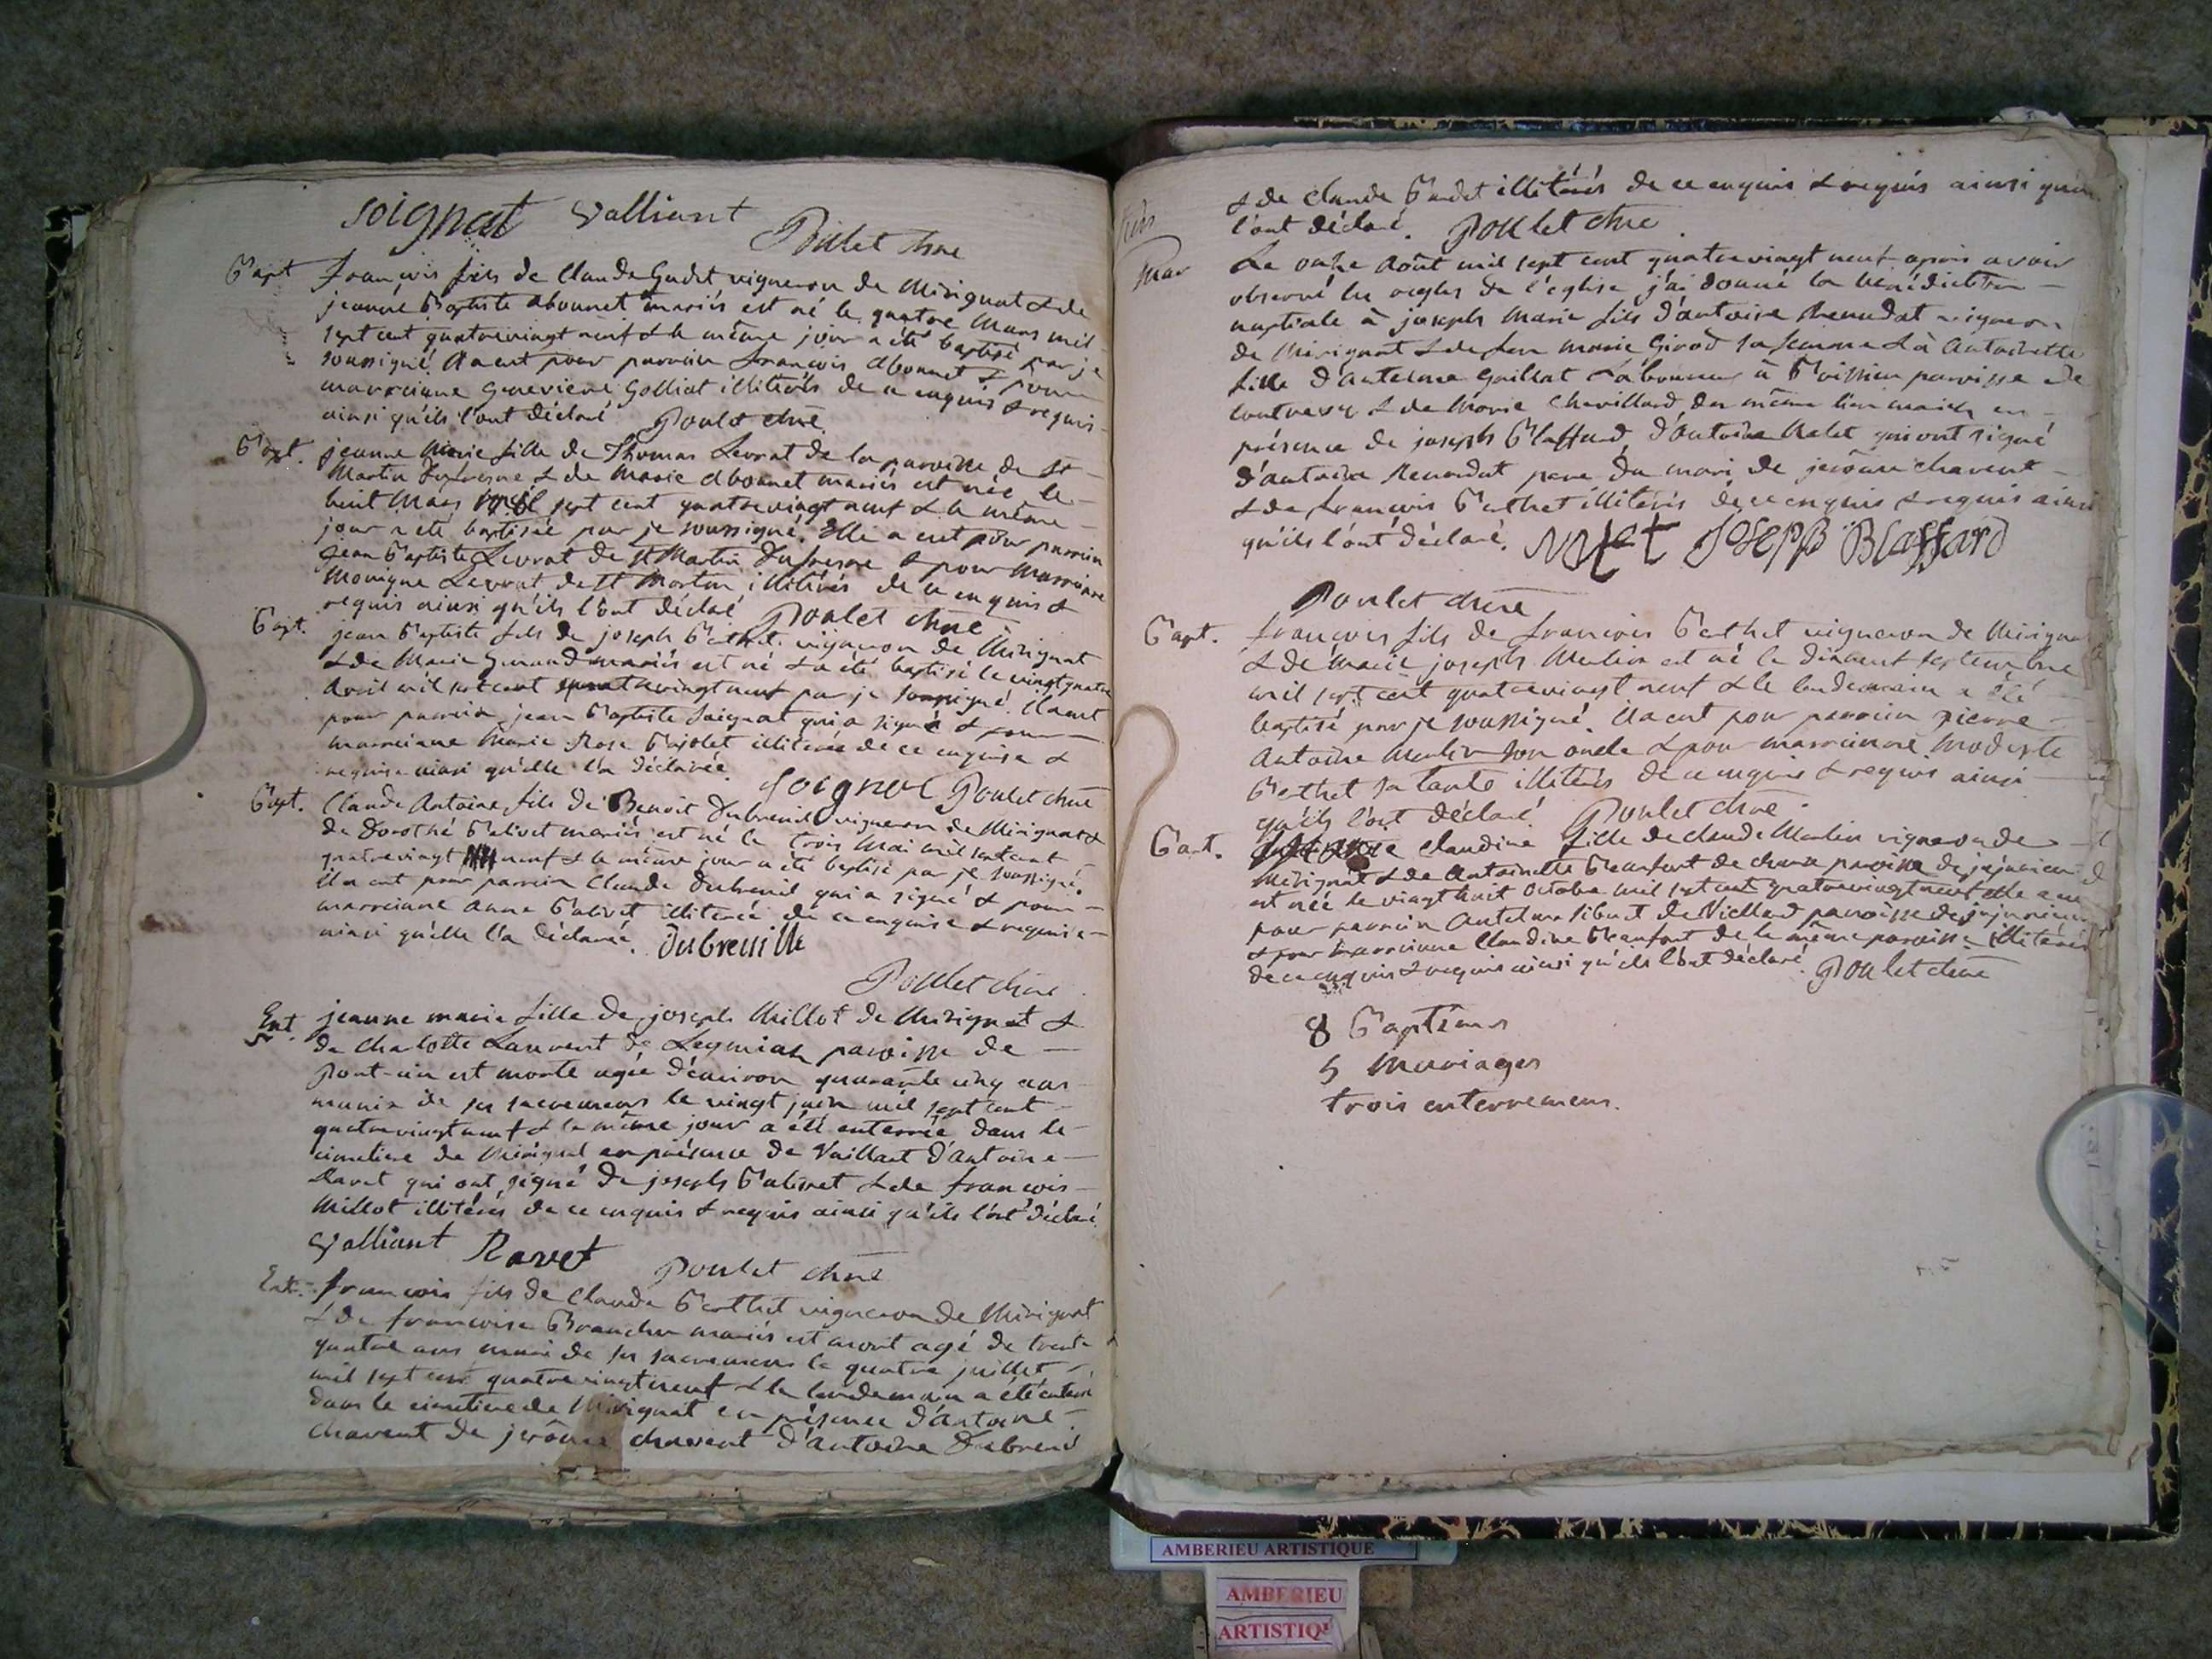 soignat valliant
Poulet chre
Bapt françois fils de Claude Gudet vigneron de Mérignat & de
jeanne Baptiste abonnet mariés est né le quatre Mars mil
sept cent quatrevingt neuf & le même jour a été baptisé par je
soussigné il a eut pour parrein françois abonnet & pour
marreinne Genevieve Golliat illitérés de ce enquis & requis
ainsi qu'ils l'ont déclaré Poulet chre.
Bapt. jeanne Marie fille de Thomas Levrat de la paroisse de St
Martin Dufresne & de Marie abonnet mariés est née le
huit Mars mil sept cent quatrevingt neuf & le même
jour a été baptisée par je soussigné. Elle a eut pour parrein
jean Baptiste Levrat de St Martin Dufresne & pour Marreinne
Monique Levrat de St Martin illitérés de ce enquis &
requis ainsi qu'ils l'ont déclaré Poulet chre.
Bapt. jean Baptiste fils de joseph Berthet vigneron de Mérignat
& de Marie Gurand mariés est né & a été baptisé le vingt quatre
Avril mil sept cent quatrevingt neuf par je soussigné. il a eut
pour parrein jean Baptiste Soignat qui a signé & pour
marreinne Marie Rose Bajolet illiterée de ce enquise &
requise ainsi qu'elle l'a déclarée. Soignat Poulet chre
Bapt. Claude Antoine fils de Benoit Dubreuil vigneron de Mérignat &
de Dorothé Balivet mariés est né le trois Mai mil sept cent
quatrevingt neuf & le même jour a été baptisé par je soussigné.
il a eut pour parrein Claude Dubreuil qui a signé & pour
marreinne Anne Balivet illiterée de ce enquise & requise
ainsi qu'elle l'a déclarée. Dubreuille
Poulet chre
Ent. jeanne marie fille de joseph Millot de Mérignat &
de Charlotte Laurent de paroisse de
Pont-ain est morte agée d'environ quarante cinq ans
munie de ses sacremens le vingt juin mil sept cent
quatrevingt neuf & le même jour a été enterrée dans le
cimetiere de Mérignat en présence de Vaillant d'Antoine
Ravet qui ont signé de joseph Balivet & de françois
Millot illitérés de ce enquis & requis ainsi qu'ils l'ont déclaré
valliant Ravet Poulet chre
Ent. françois fils de Claude Berthet vigneron de Mérignat
& de françoise Branche mariés est mort agé de trente
quatre ans muni de ses sacremens le quatre juillet
mil sept cent quatrevingt neuf & le lendemain a été enterré
dans le cimetiere de Mérignat en présence d'Antoine
chavent de jerôme chavent d'antoine Dubreuil
& de claude Gudet illitérés de ce enquis & requis ainsi qu'ils
l'ont déclaré. Poulet chre.
Mar Le onze Août mil sept cent quatrevingt neuf après avoir
observé les regles de l'eglise j'ai donné la bénédiction
nuptiale à joseph Marie fils d'antoine Renudat vigneron
de Mérignat & de feue marie Girod sa femme & à Antoinette
fille d'Antelme Guillot Laboureur à Boissieu paroisse de
Contrevoz & de Marie Chevillard du même lieu mariés en
présence de joseph Blaffard, d'Antoine Nalet qui ont signé
d'antoine Renudat pere du mari de jerôme chavent
& de françois Berthet illitérés de ce enquis & requis ainsi
qu'ils l'ont déclaré. Nalet Joseph Blaffard
Poulet chre
Bapt. françois fils de françois Berthet vigneron de Mérignat
& de Marie joseph Merlin est né le dixneuf septembre
mil sept cent quatrevingt neuf & le lendemain a été
baptisé par je soussigné il a eut pour parrein pierre
Antoine Merlin son oncle & pour marreinne Modeste
Berthet sa tante illitérés de ce enquis & requis ainsi
qu'ils l'ont déclaré Poulet chre.
Bapt. Claudine fille de claude Merlin vigneron de
Mérignat & de Antoinette Beaufort de paroisse de jujurieux
est née le vingt huit Octobre mil sept cent quatrevingt neuf elle a eu
pour parrein Antelme Sibuet de Vieillard paroisse de jujurieux
& pour marreinne Claudine Beaufort de la même paroisse illitérés
de ce enquis & requis ainsi qu'ils l'ont déclaré. Poulet chre
8 Baptêmes
5 Mariages
trois enterremens.
AMBERIEU ARTISTIQUE
AMBERIEU
ARTISTIQ